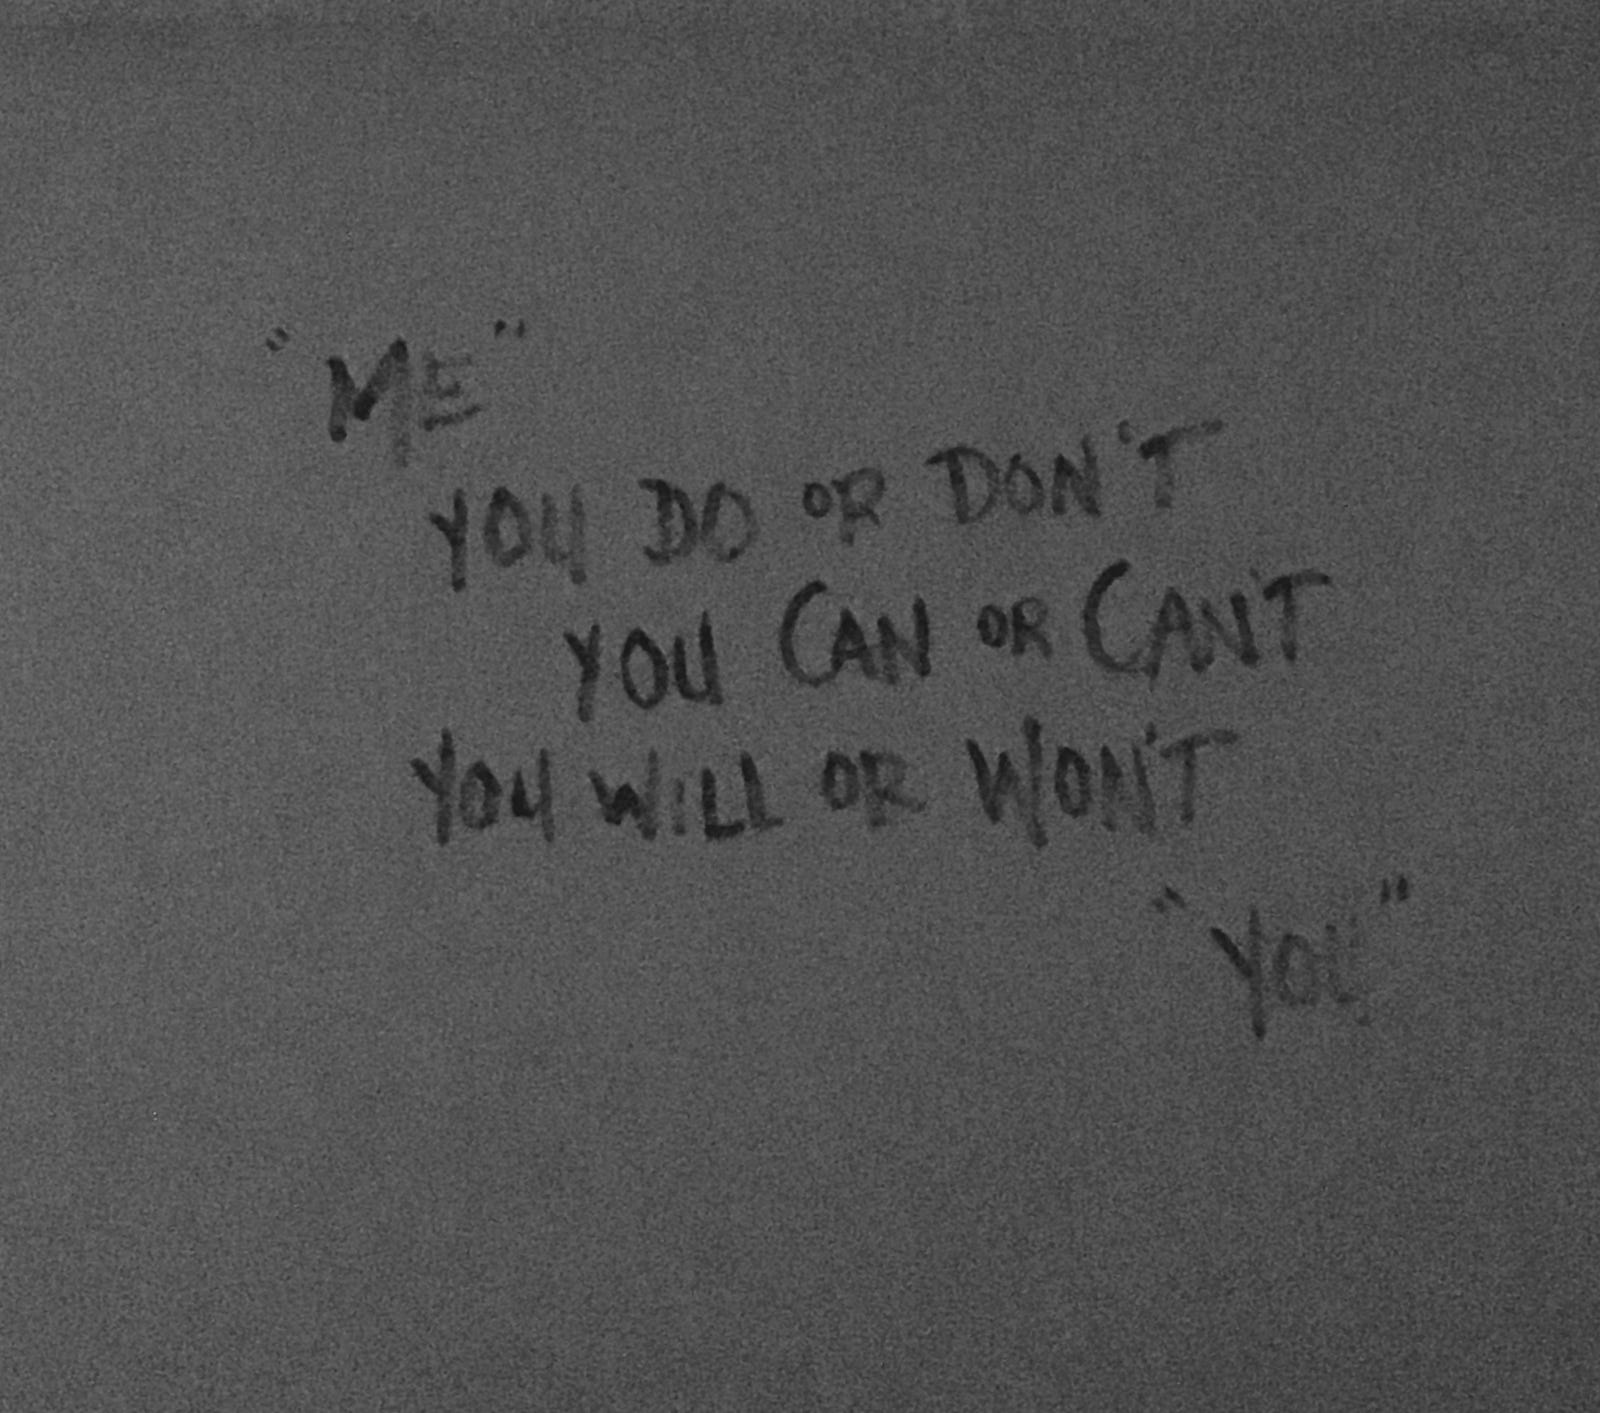 "ME"
YOU DO OR DON'T
YOU CAN OR CAN'T
YOU WILL OR WON'T
"YOU"